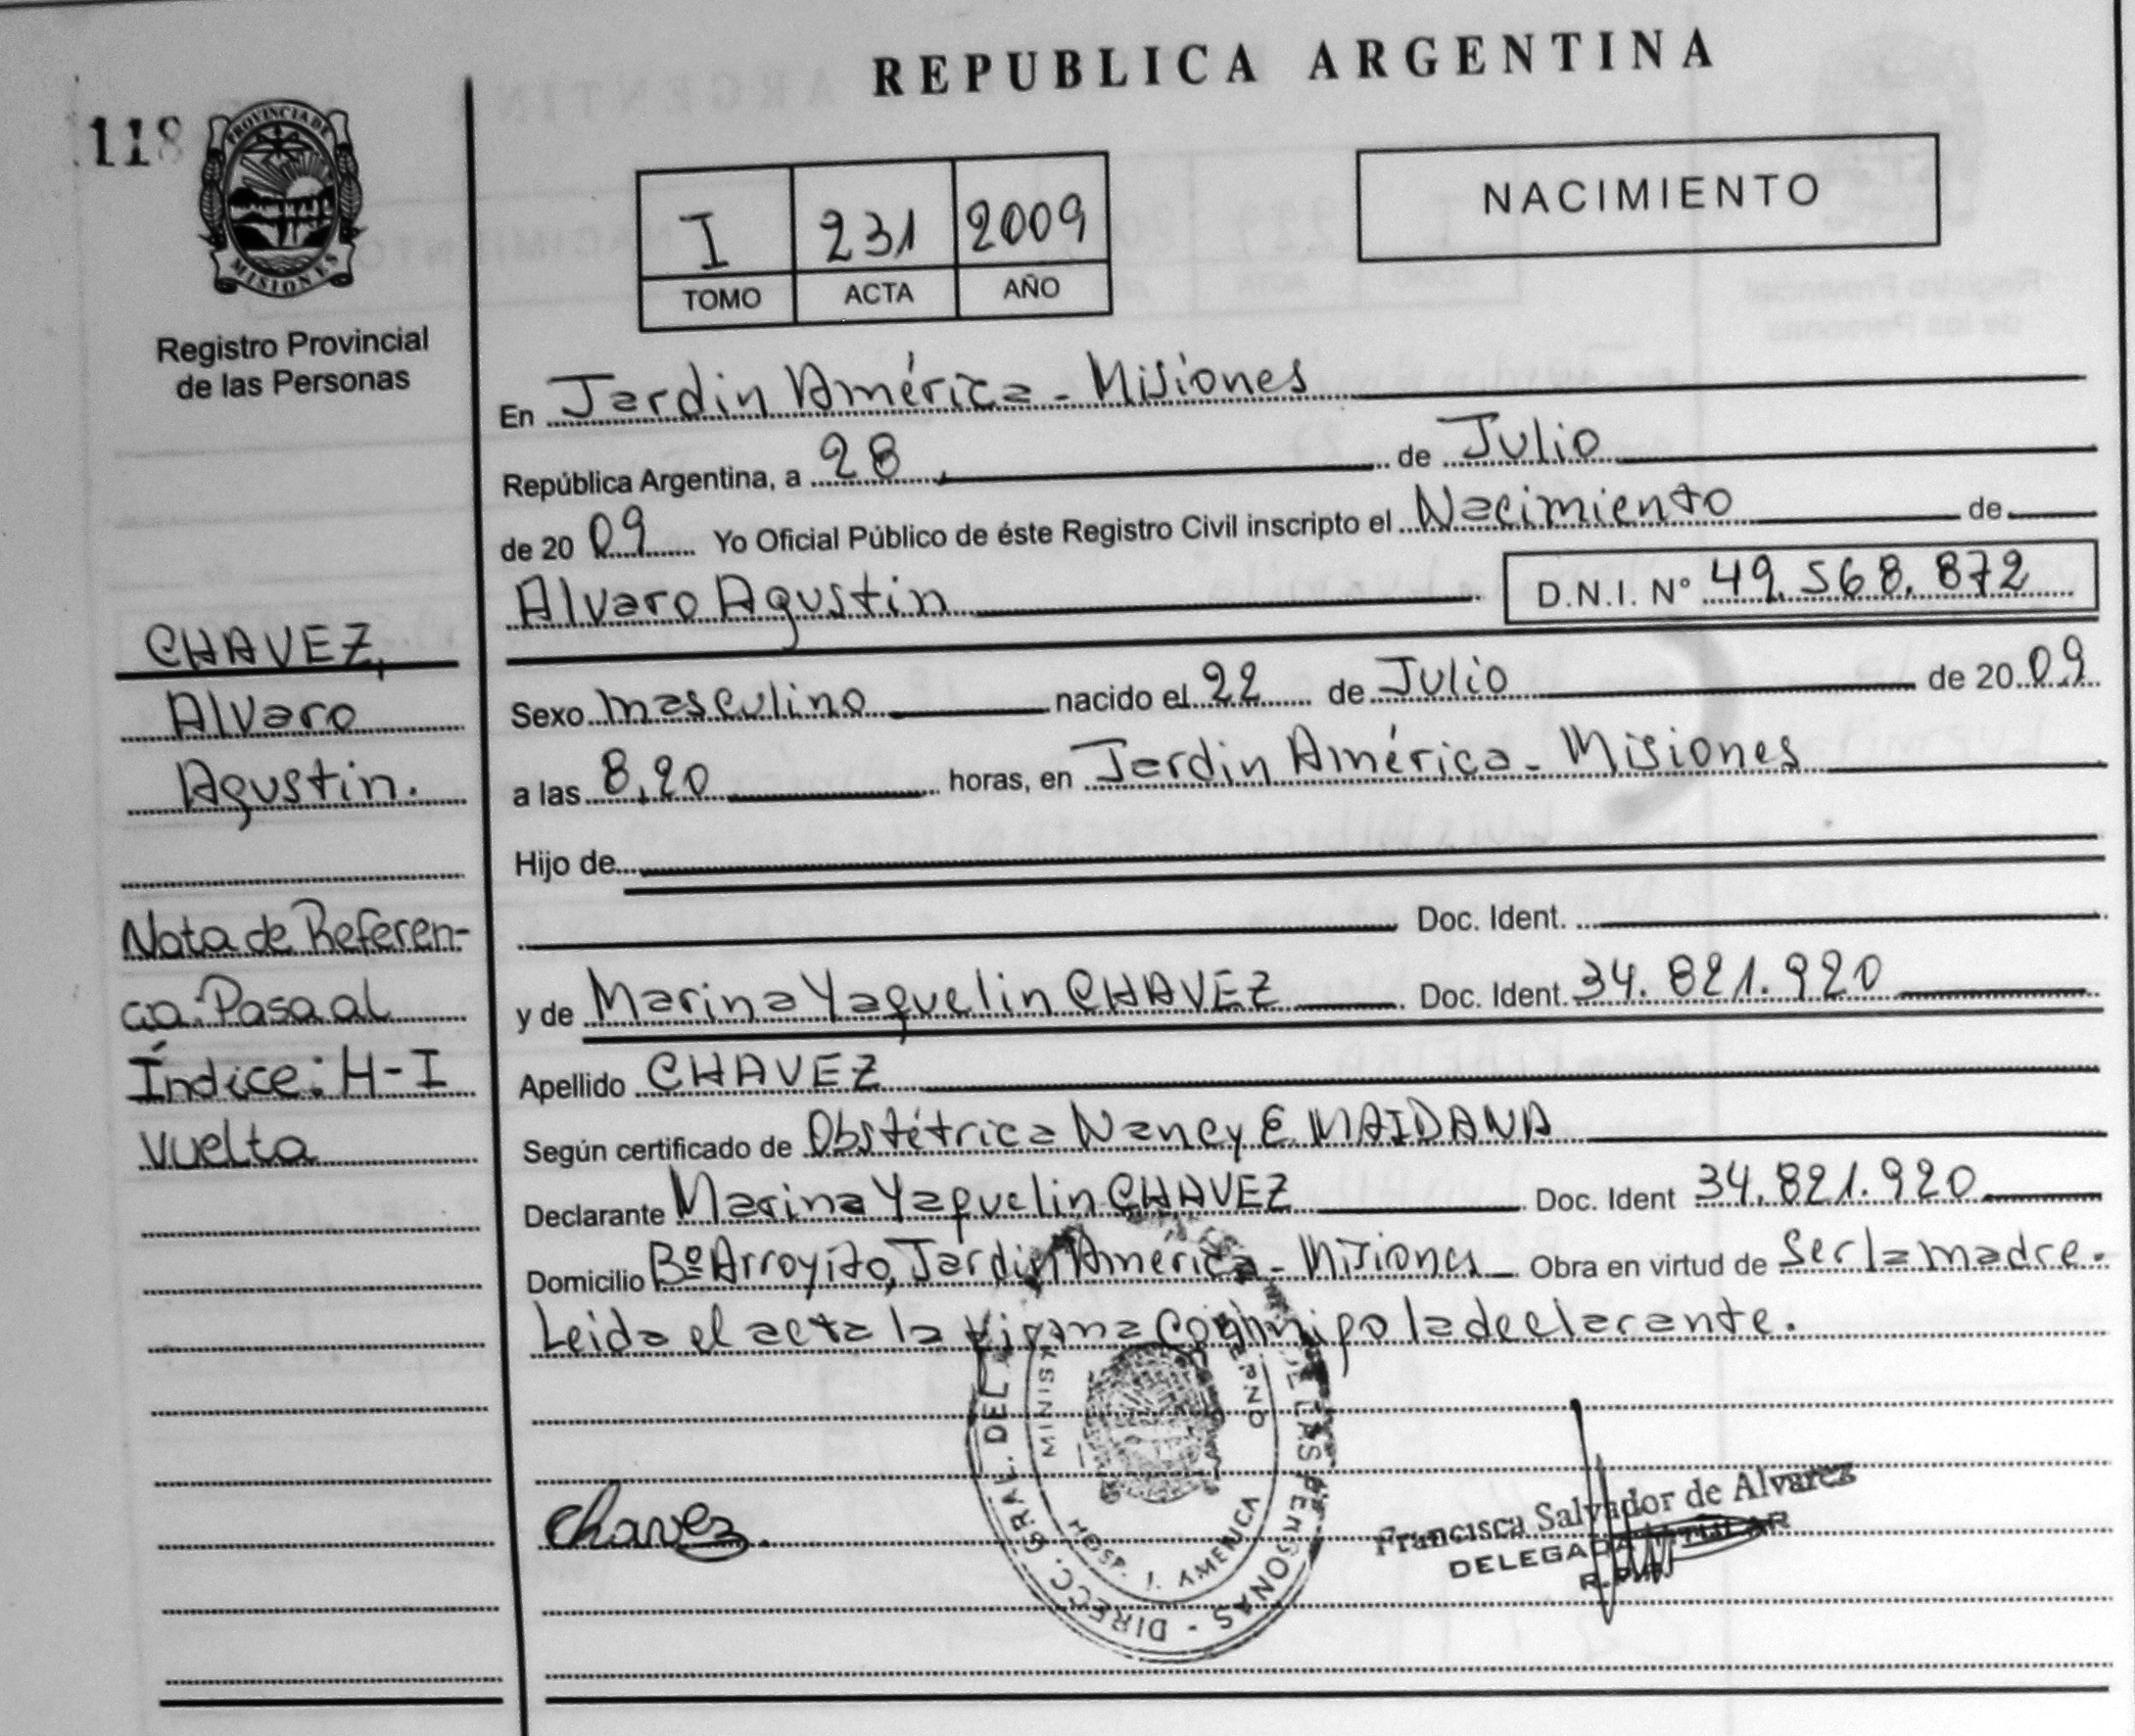 REPUBLICA ARGENTINA
118
PROVINCIA DE
MISIONES
Registro Provincial
de las Personas
I 231 2009
TOMO ACTA AÑO
NACIMIENTO
En Jardin América - Misiones
República Argentina, a 28 de Julio
de 20 09 Yo Oficial Público de éste Registro Civil inscripto el Nacimiento de
Alvaro Agustin D.N.I. Nº 49.568.872
CHAVEZ,
Alvaro
Agustin.
Sexo masculino nacido el 22 de Julio de 20 09
a las 8,20 horas, en Jardin América - Misiones
Hijo de
Doc. Ident.
y de Marina Yaquelin CHAVEZ Doc. Ident. 34.821.920
Apellido CHAVEZ
Según certificado de Obstétrica Nancy E. MAIDANA
Declarante Marina Yaquelin CHAVEZ Doc. Ident 34.821.920
Domicilio Bº Arroyito, Jardin América - Misiones Obra en virtud de Ser la madre.
Leida el acta la firma conmigo la declarante.
Nota de Referen-
cia: Pasa al
Índice: H-I
vuelta
Chavez.
DIRECC. GRAL. DEL DE LAS PERSONAS
HOSP. J. AMERICA
Francisca Salvador de Alvarez
DELEGADA TITULAR
R.P.P.